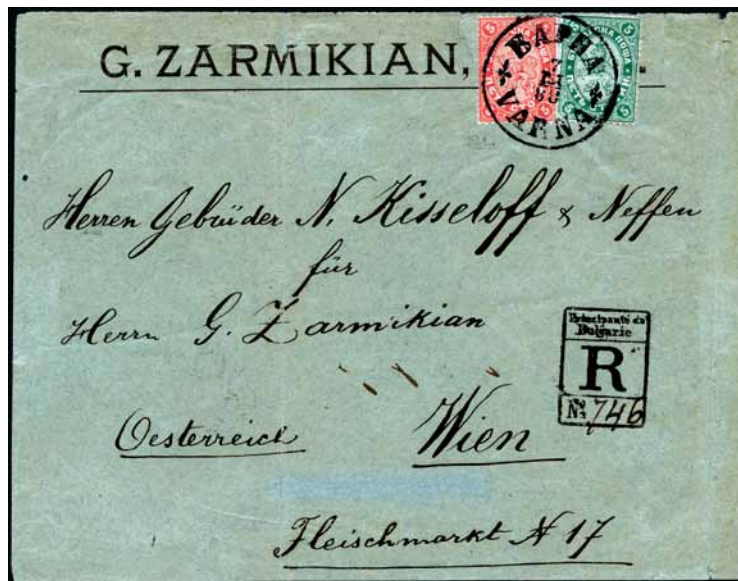 G. ZARMIKIAN,
ВАРНА
VARNA
5 5
5 5
Herren Gebrüder N. Kisseloff & Neffen
für
Herrn G. Zarmikian
Principauté de
Bulgarie
R
No 746
Oesterreich Wien
Fleischmarkt N 17